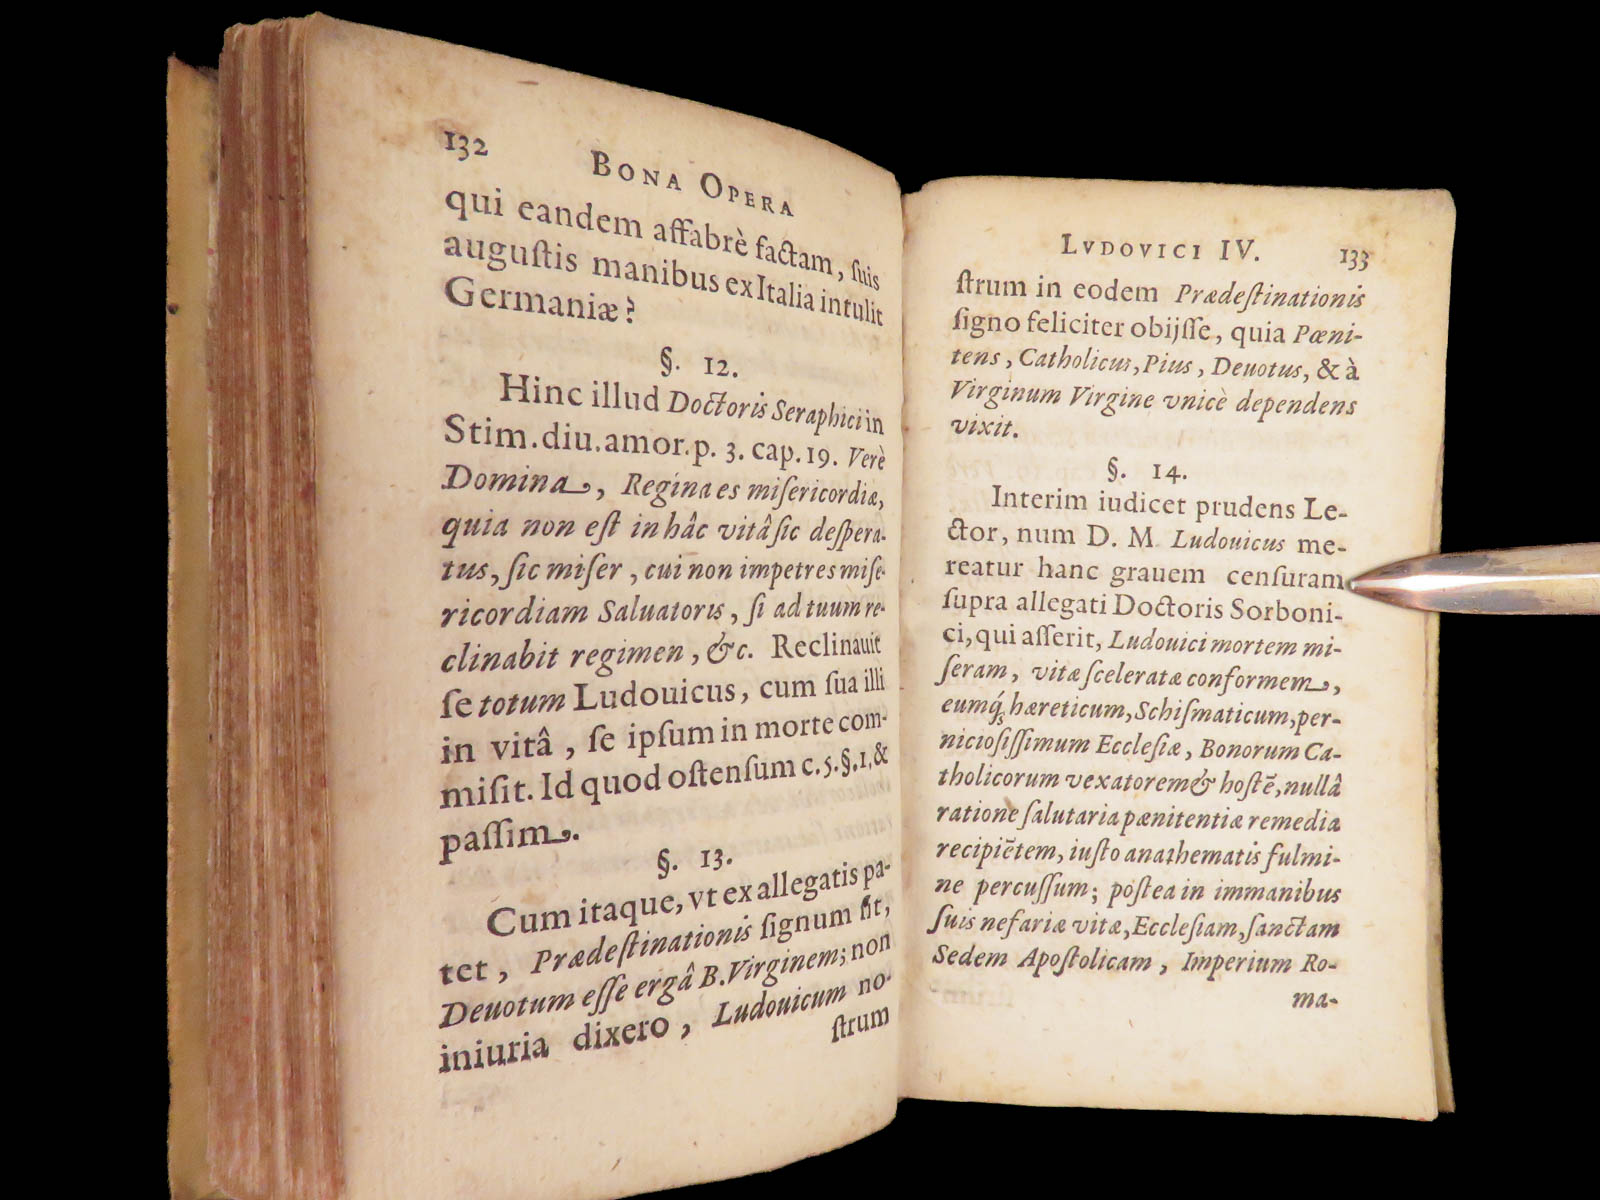 132
BONA OPERA
qui eandem affabrè factam, ſuis
auguſtis manibus ex Italia intulit
Germaniæ?
§. 12.
Hinc illud Doctoris Seraphici in
Stim. diu. amor. p. 3. cap. 19. Verè
Domina, Regina es miſericordiæ,
quia non eſt in hâc vitâ ſic deſpera-
tus, ſic miſer, cui non impetres miſe-
ricordiam Saluatoris, ſi ad tuum re-
clinabit regimen, &c. Reclinauit
ſe totum Ludouicus, cum ſua illi
in vitâ, ſe ipſum in morte com-
miſit. Id quod oſtenſum c. 5. §. 1, &
paſſim.
§. 13.
Cum itaque, vt ex allegatis pa-
tet, Prædeſtinationis ſignum ſit,
Deuotum eſſe ergâ B. Virginem; non
iniuria dixero, Ludouicum no-
ſtrum
LVDOVICI IV.
133
ſtrum in eodem Prædeſtinationis
ſigno feliciter obijſſe, quia Pœni-
tens, Catholicus, Pius, Deuotus, & à
Virginum Virgine vnicè dependens
vixit.
§. 14.
Interim iudicet prudens Le-
ctor, num D. M. Ludouicus me-
reatur hanc grauem cenſuram
ſupra allegati Doctoris Sorboni-
ci, qui aſſerit, Ludouici mortem mi-
ſeram, vitæ ſceleratæ conformem,
eumq́; hæreticum, Schiſmaticum, per-
nicioſiſſimum Eccleſiæ, Bonorum Ca-
tholicorum vexatorem & hoſtē, nullâ
ratione ſalutaria pænitentiæ remedia
recipiētem, iuſto anathematis fulmi-
ne percuſſum; poſtea in immanibus
ſuis nefariæ vitæ, Eccleſiam, ſanctam
Sedem Apoſtolicam, Imperium Ro-
ma-